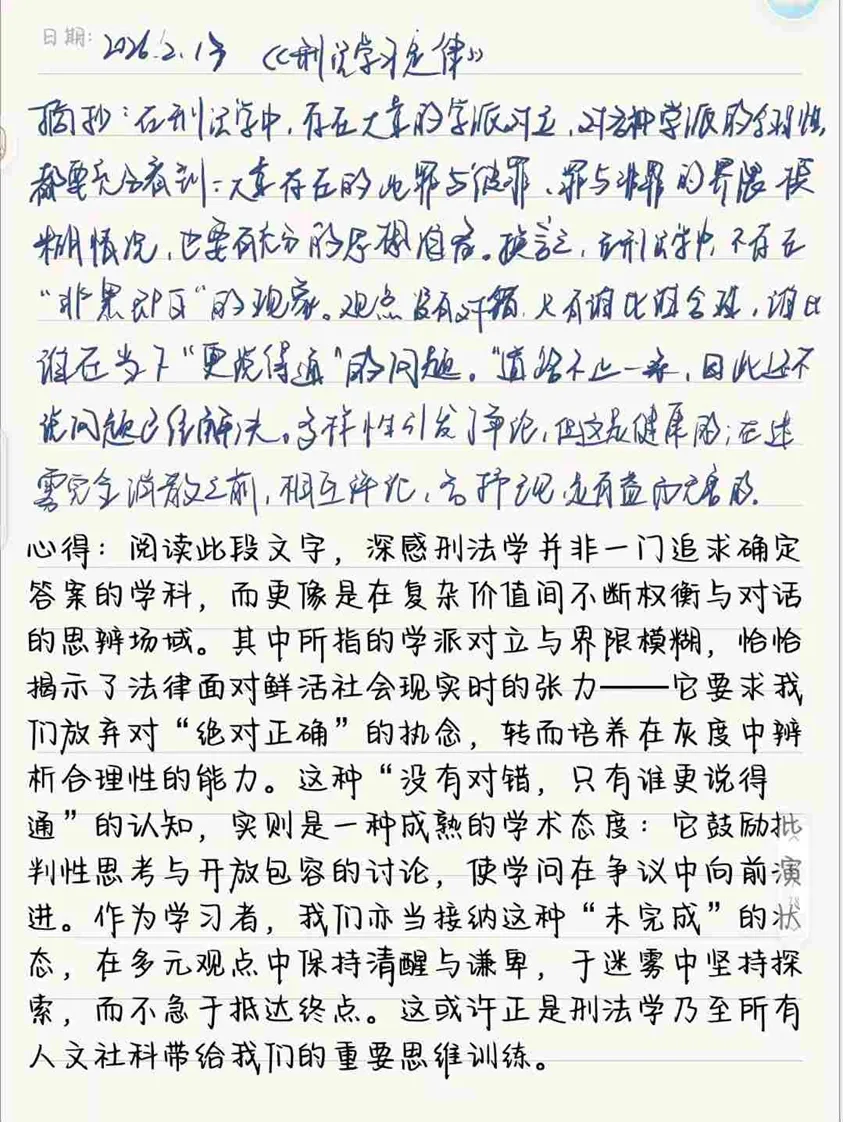 日期: 2026.2.13 《刑法学习定律》
摘抄：在刑法学中，存在大量的学派对立，对各种学派的合理性，
都要充分看到：大量存在的此罪与彼罪、罪与非罪的界限模
糊情况，也要有充分的思想准备。换言之，在刑法学中，不存在
“非黑即白”的现象。观点没有对错，只有谁比谁合理，谁比
谁在当下“更说得通”的问题。“道路不止一条，因此还不
说问题已经解决。多样性引发了争论，但这是健康的；在迷
雾完全消散之前，相互评论，各抒己见，是有益而无害的.
心得：阅读此段文字，深感刑法学并非一门追求确定
答案的学科，而更像是在复杂价值间不断权衡与对话
的思辨场域。其中所指的学派对立与界限模糊，恰恰
揭示了法律面对鲜活社会现实时的张力——它要求我
们放弃对“绝对正确”的执念，转而培养在灰度中辨
析合理性的能力。这种“没有对错，只有谁更说得
通”的认知，实则是一种成熟的学术态度：它鼓励批
判性思考与开放包容的讨论，使学问在争议中向前演
进。作为学习者，我们亦当接纳这种“未完成”的状
态，在多元观点中保持清醒与谦卑，于迷雾中坚持探
索，而不急于抵达终点。这或许正是刑法学乃至所有
人文社科带给我们的重要思维训练。